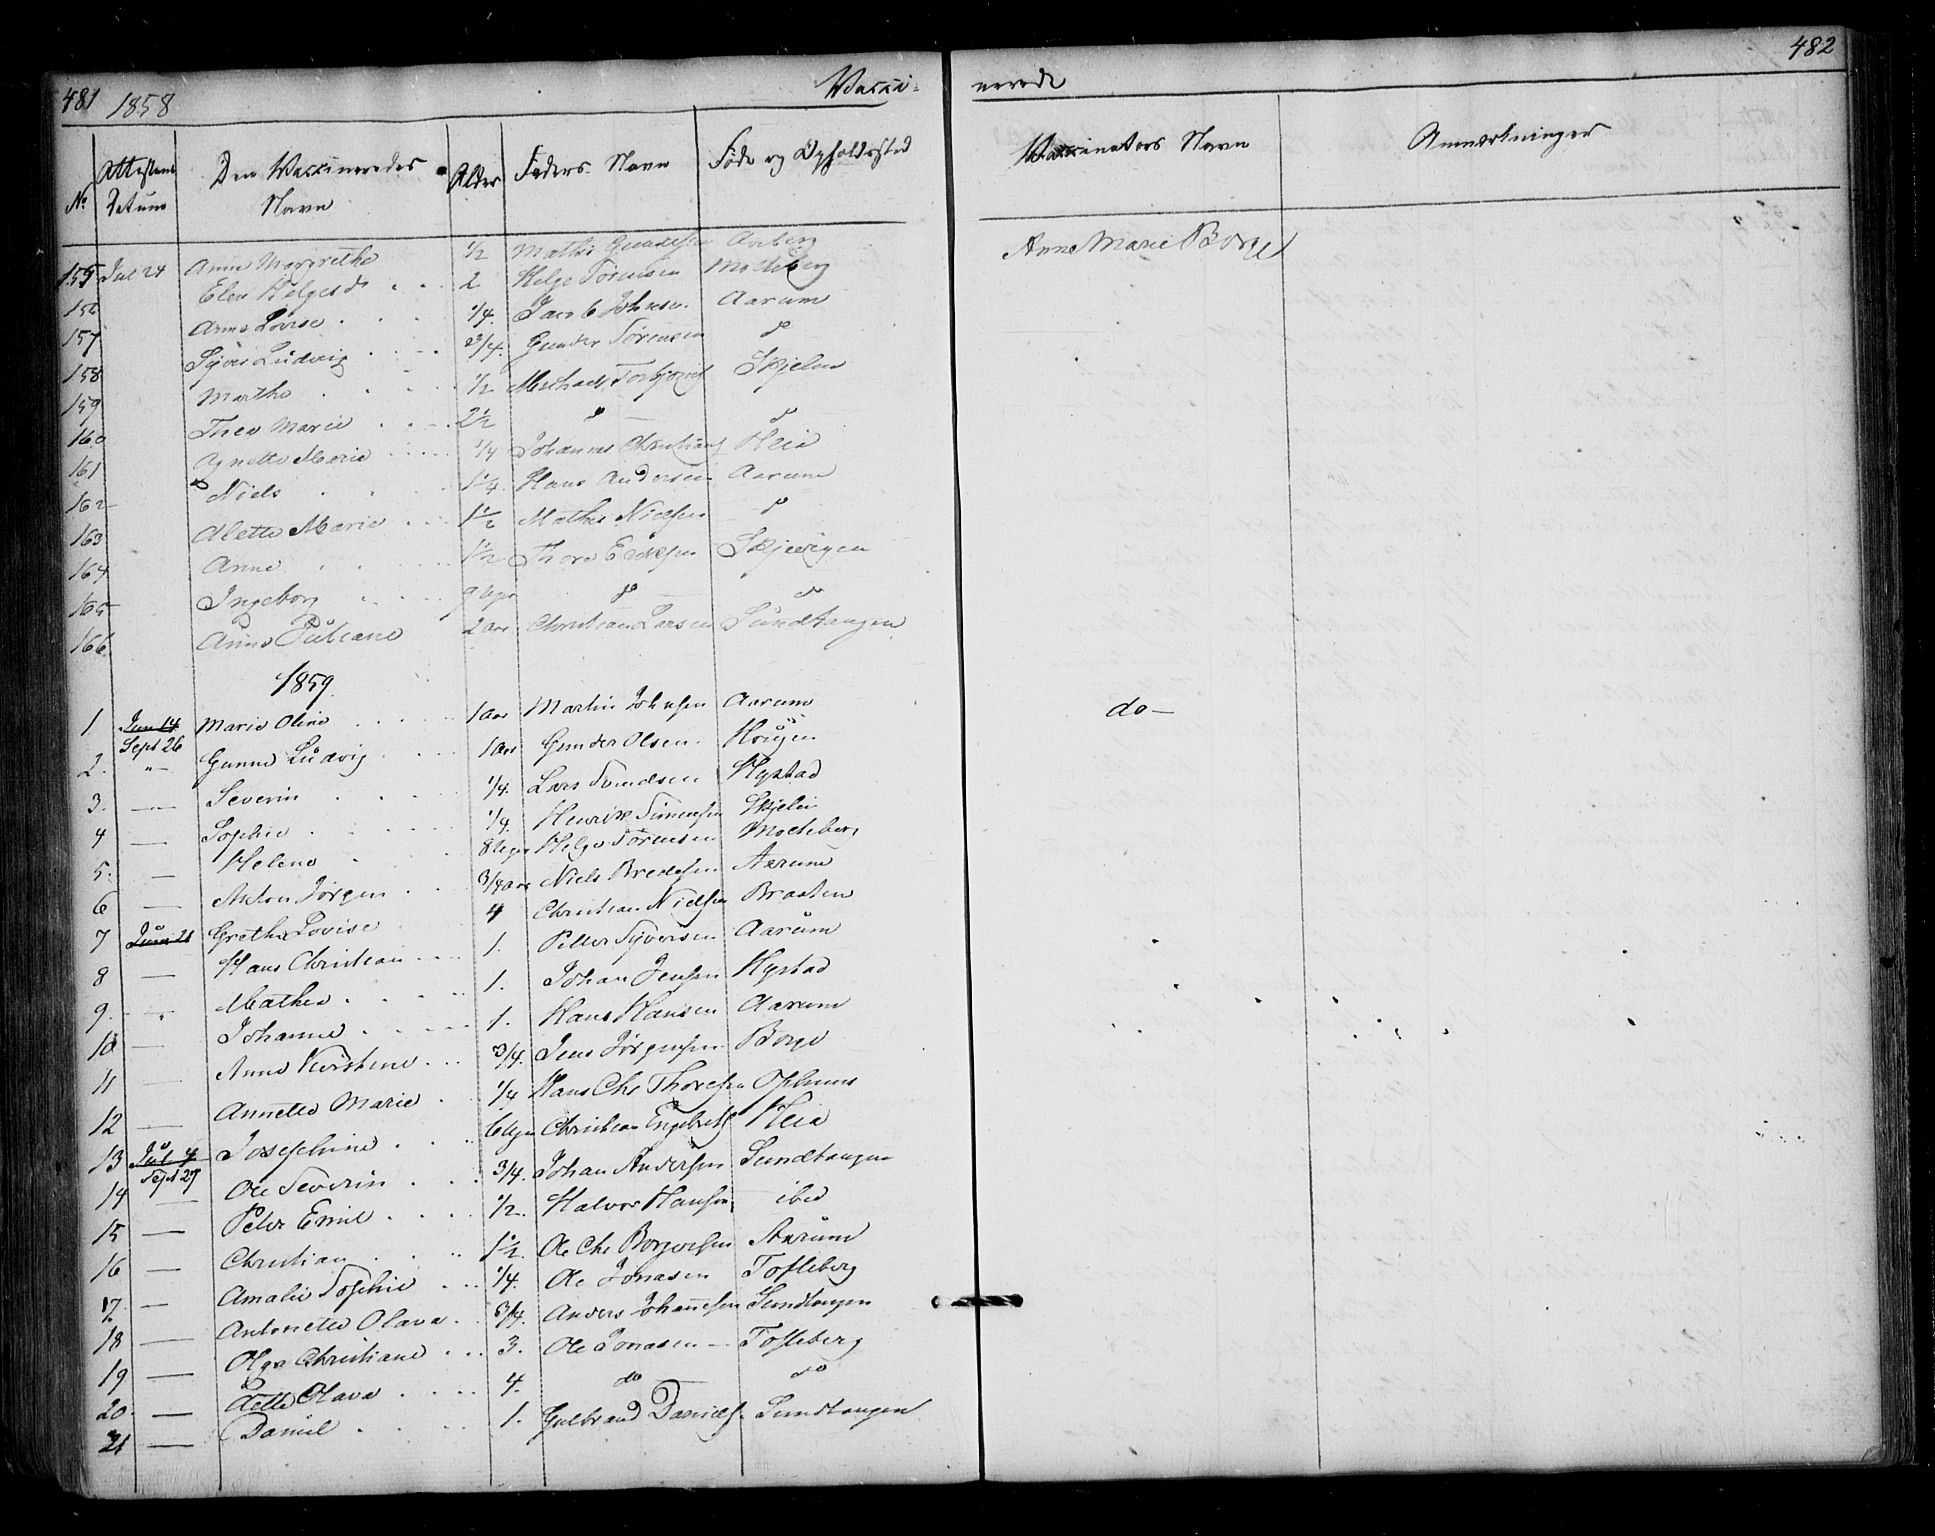 481 1858 Vacci- nerede 482
No Attestens Datum Den Vaccineredes Navn Alder Faders Navn Føde og Opholdssted Vaccinators Navn Anmærkninger
155 Jul 24 Anne Margrethe 1/2 Mathis Aarberg Anne Marie Borge
156 Elen Helgesd 2 Helge Sørensen Mocheberg
157 Anne Lovise 1/4 Jacob Johnsen Aarum
158 Syver Ludvig 2 3/4 Gunder Sørensen do
159 Marthe 1/2 Michael Torbjørns Skjelin
160 Thea Marie 2 1/2 do do
161 Agnette Marie 1/4 Johannes Christians Heia
162 Niels 1 1/4 Hans Andersen Aarum
163 Alette Marie 1 1/2 Mathis Nielsen do
164 Anne 1 1/2 Thore Ericksen
165 Ingeborg 9 Uger do do
166 Anne Juliane 2 Aar Christian Larsen Sundtangen
1859
1 Jun 14 Sept 26 Marie Oline 1 Aar Martin Johnsen Aarum do
2. -"- Gunne Ludvig 1 Aar Gunder Olsen Hougen
3. -"- Severin 1/4. Lars Svendsen Hystad
4 — Sophie 1/4. Henrik Simensen Skjelin
5. — Helene 8 Uger Helge Sørensen Mocheberg
6 — Anton Jørgen 3/4 Aar Niels Bredesen Aarum
7 Juni 21 Grethe Lovise 4 Christian Nielsen Braaten
8 — Hans Christian 1. Petter Syversen Aarum
9. — Mathea 1. Johan Jensen Hystad
10 — Johanne 1. Hans Hansen Aarum
11 — Anne Kirstine 3/4. Jens Jørgensen Borge
12 — Annette Marie 1/4 Hans Chr Thoresen Opheim
13 Jul 4 Sept 27 Josephine 6 Uger Christian Engebrets Heia
14 — Ole Severin 3/4. Johan Andersen Sundtangen
15 — Peter Emil 1/2. Halvor Hansen ibid
16 — Christian 1 1/2. Ole Chr Borgersen Aarum
17. — Amalie Sophie 1/4. Ole Jonasen Tofteberg
18 — Antonette Olava 3/4. Anders Johannesen Sundtangen
19 — Olga Christiane 3. Ole Jonasen Tofteberg
20. — Olava 4. do do
21 — Daniel 1. Gulbrand Daniels. Sundtangen